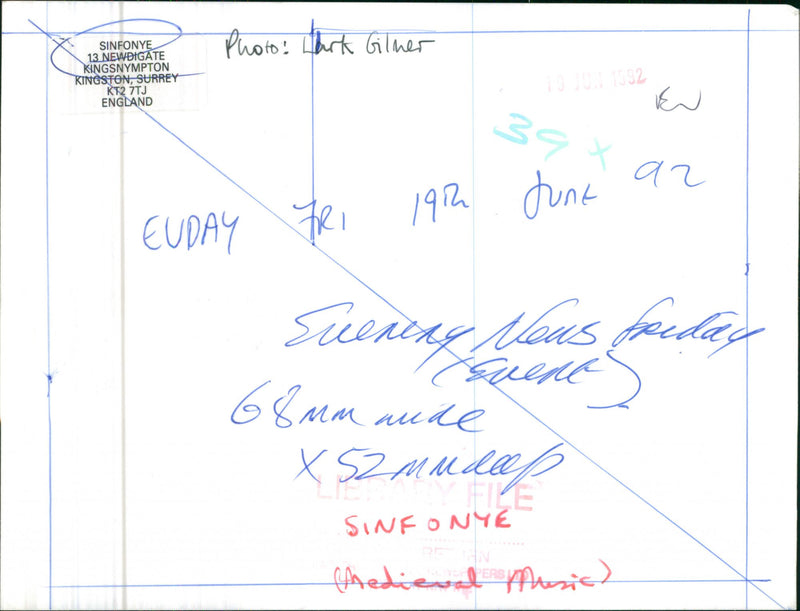 SINFONYE
13 NEWDIGATE
KINGSNYMPTON
KINGSTON, SURREY
KT2 7TJ
ENGLAND
Photo: Gilmer
19 JUN 1992
EN
39 x
EVDAY FRI 19th JUNE 92
Evening News Friday
(Event)
68mm wide
x 52mm deep
LIBRARY FILE
SINFONYE
RETURN
(Medieval Music)